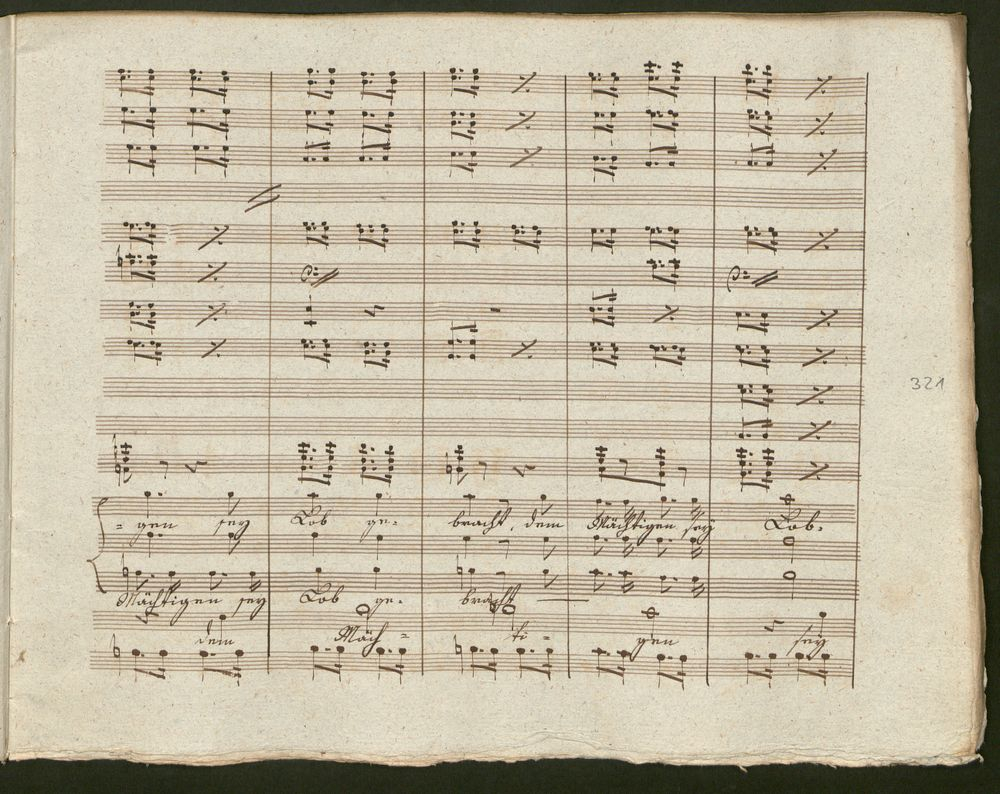 321
- gen sey Lob ge- bracht, dem Mächtigen sey Lob.
Mächtigen sey Lob ge- bracht
dem Mäch- ti- gen sey